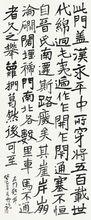 此門蓋漢永平中所穿將五百載世
代綿迴屯夷遞作乍開乍閉通塞不恒
自晉氏南遷斯路廢矣其崖岸崩
淪磵閣堙褫門南北各數里車馬不通
者久之攀蘿捫葛然後可至